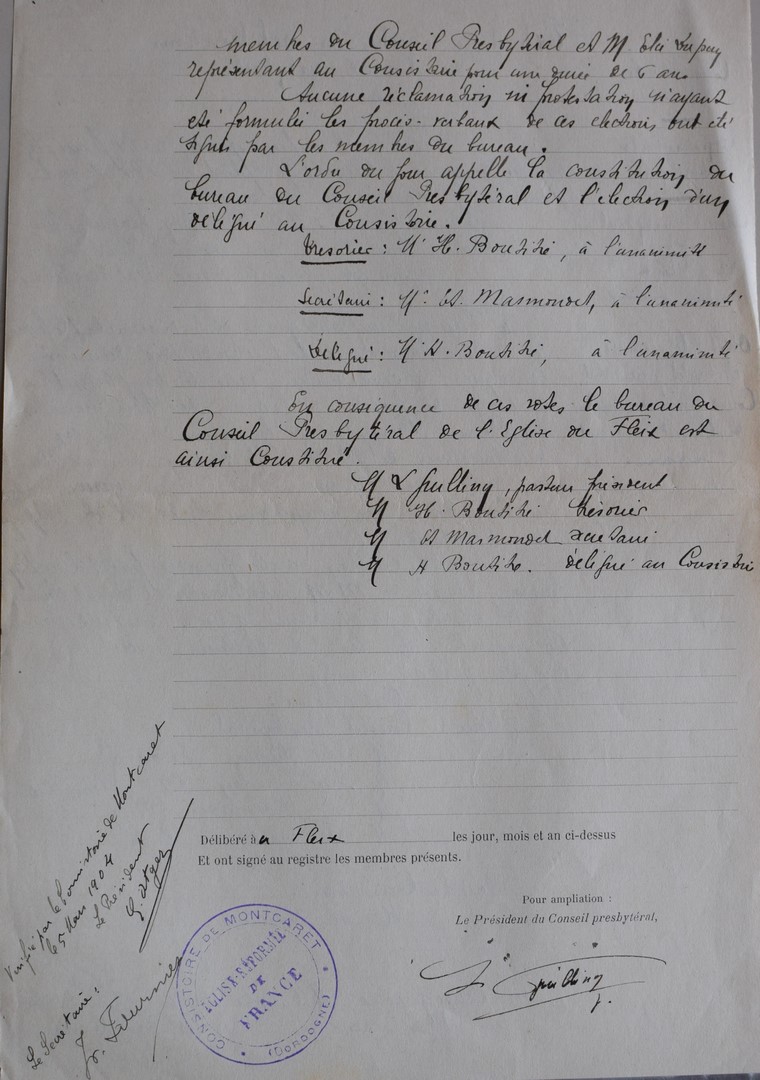 membres du Conseil Presbytéral et M Elie Dupuy
représentant au Consistoire pour une durée de 6 ans
Aucune réclamation ni protestation n'ayant
été formulée les procès-verbaux de ces élections ont été
signés par les membres du bureau.
L'ordre du jour appelle la constitution du
bureau du Conseil Presbytéral et l'élection d'un
délégué au Consistoire.
Trésorier : Mr H. Boutité, à l'unanimité
Secrétaire : Mr. Et. Marmondet, à l'unanimité
Délégué : M H. Boutité, à l'unanimité
En conséquence de ces votes le bureau du
Conseil Presbytéral de l'Eglise du Fleix est
ainsi constitué.
M L Guilling, pasteur président
M H. Boutité trésorier
M Et Marmondet secrétaire
M H Boutité. délégué au Consistoire
Délibéré à u Fleix les jour, mois et an ci-dessus
Et ont signé au registre les membres présents.
Pour ampliation :
Le Président du Conseil presbytéral,
L. Guilling
Vérifié par le Consistoire de Montcaret
le 5 Mars 1904
Le Président
Le Secrétaire :
CONSISTOIRE DE MONTCARET
ÉGLISE RÉFORMÉE
DE
FRANCE
(DORDOGNE)